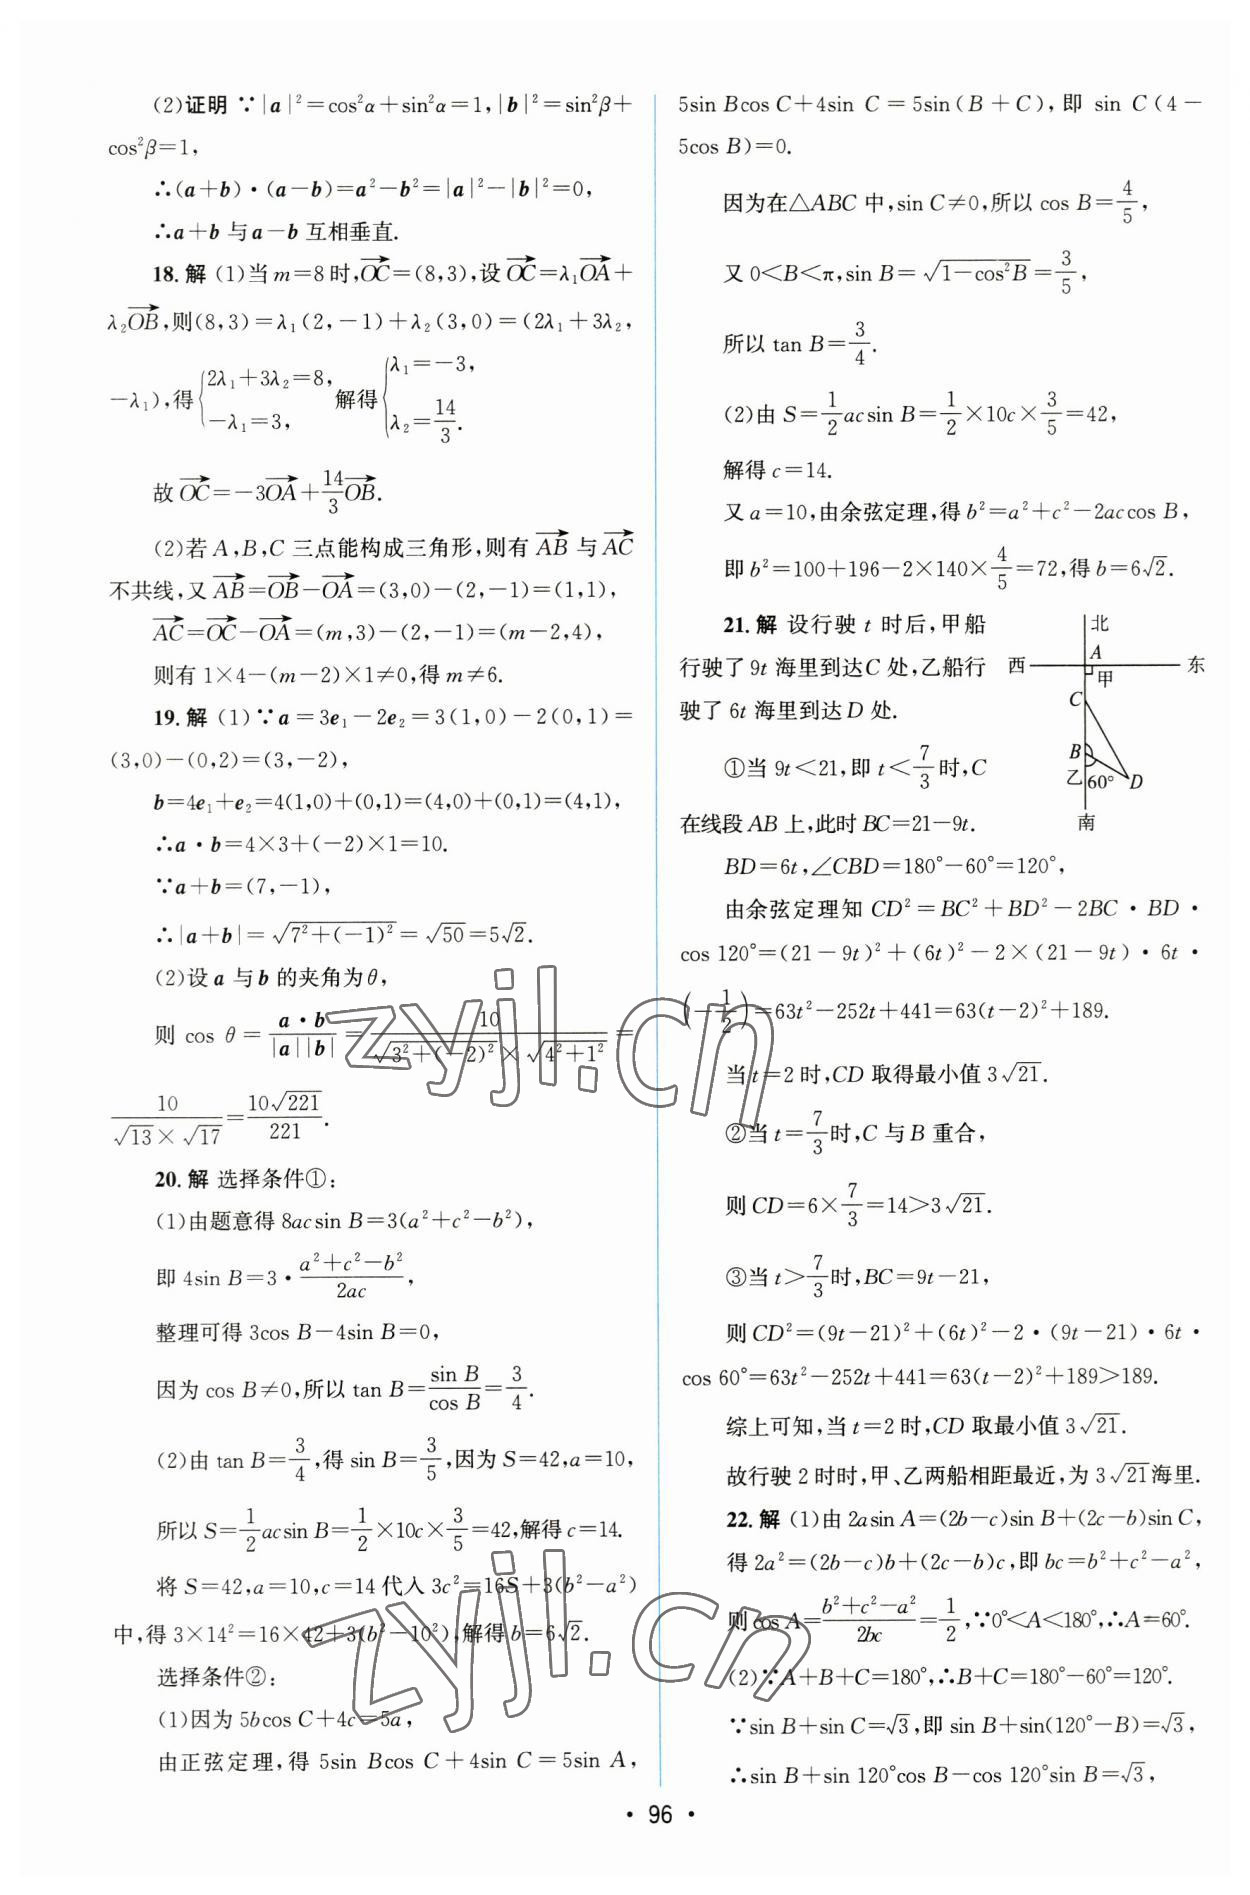 (2)证明 ∵|a|²=cos²α+sin²α=1,|b|²=sin²β+
cos²β=1,
∴(a+b)·(a-b)=a²-b²=|a|²-|b|²=0,
∴a+b 与 a-b 互相垂直.
18.解 (1)当 m=8 时,$\overrightarrow{OC}$=(8,3),设 $\overrightarrow{OC}$=λ₁$\overrightarrow{OA}$+
λ₂$\overrightarrow{OB}$,则(8,3)=λ₁(2,-1)+λ₂(3,0)=(2λ₁+3λ₂,
-λ₁),得$\begin{cases}2λ_1+3λ_2=8,\\-λ_1=3,\end{cases}$解得$\begin{cases}λ_1=-3,\\λ_2=\frac{14}{3}.\end{cases}$
故 $\overrightarrow{OC}$=-3$\overrightarrow{OA}$+$\frac{14}{3}$$\overrightarrow{OB}$.
(2)若 A,B,C 三点能构成三角形,则有 $\overrightarrow{AB}$ 与 $\overrightarrow{AC}$
不共线,又 $\overrightarrow{AB}$=$\overrightarrow{OB}$-$\overrightarrow{OA}$=(3,0)-(2,-1)=(1,1),
$\overrightarrow{AC}$=$\overrightarrow{OC}$-$\overrightarrow{OA}$=(m,3)-(2,-1)=(m-2,4),
则有 1×4-(m-2)×1≠0,得 m≠6.
19.解 (1)∵a=3e₁-2e₂=3(1,0)-2(0,1)=
(3,0)-(0,2)=(3,-2),
b=4e₁+e₂=4(1,0)+(0,1)=(4,0)+(0,1)=(4,1),
∴a·b=4×3+(-2)×1=10.
∵a+b=(7,-1),
∴|a+b|=$\sqrt{7^2+(-1)^2}$=$\sqrt{50}$=5$\sqrt{2}$.
(2)设 a 与 b 的夹角为 θ,
则 cos θ=$\frac{a·b}{|a||b|}$=$\frac{10}{\sqrt{3^2+(-2)^2}×\sqrt{4^2+1^2}}$=
$\frac{10}{\sqrt{13}×\sqrt{17}}$=$\frac{10\sqrt{221}}{221}$.
20.解 选择条件①:
(1)由题意得 8acsin B=3(a²+c²-b²),
即 4sin B=3·$\frac{a^2+c^2-b^2}{2ac}$,
整理可得 3cos B-4sin B=0,
因为 cos B≠0,所以 tan B=$\frac{\sin B}{\cos B}$=$\frac{3}{4}$.
(2)由 tan B=$\frac{3}{4}$,得 sin B=$\frac{3}{5}$,因为 S=42,a=10,
所以 S=$\frac{1}{2}$acsin B=$\frac{1}{2}$×10c×$\frac{3}{5}$=42,解得 c=14.
将 S=42,a=10,c=14 代入 3c²=16S+3(b²-a²)
中,得 3×14²=16×42+3(b²-10²),解得 b=6$\sqrt{2}$.
选择条件②:
(1)因为 5bcos C+4c=5a,
由正弦定理,得 5sin Bcos C+4sin C=5sin A,
5sin Bcos C+4sin C=5sin(B+C),即 sin C(4-
5cos B)=0.
因为在△ABC 中,sin C≠0,所以 cos B=$\frac{4}{5}$,
又 0<B<π,sin B=$\sqrt{1-\cos^2B}$=$\frac{3}{5}$,
所以 tan B=$\frac{3}{4}$.
(2)由 S=$\frac{1}{2}$acsin B=$\frac{1}{2}$×10c×$\frac{3}{5}$=42,
解得 c=14.
又 a=10,由余弦定理,得 b²=a²+c²-2accos B,
即 b²=100+196-2×140×$\frac{4}{5}$=72,得 b=6$\sqrt{2}$.
21.解 设行驶 t 时后,甲船
行驶了 9t 海里到达C 处,乙船行
驶了 6t 海里到达 D 处.
①当 9t<21,即 t<$\frac{7}{3}$时,C
在线段 AB 上,此时 BC=21-9t.
北
A
西
东
甲
C
B
乙
60°
D
南
BD=6t,∠CBD=180°-60°=120°,
由余弦定理知 CD²=BC²+BD²-2BC·BD·
cos 120°=(21-9t)²+(6t)²-2×(21-9t)·6t·
$\left(-\frac{1}{2}\right)$=63t²-252t+441=63(t-2)²+189.
当 t=2 时,CD 取得最小值 3$\sqrt{21}$.
②当 t=$\frac{7}{3}$时,C 与 B 重合,
则 CD=6×$\frac{7}{3}$=14>3$\sqrt{21}$.
③当 t>$\frac{7}{3}$时,BC=9t-21,
则 CD²=(9t-21)²+(6t)²-2·(9t-21)·6t·
cos 60°=63t²-252t+441=63(t-2)²+189>189.
综上可知,当 t=2 时,CD 取最小值 3$\sqrt{21}$.
故行驶 2 时时,甲、乙两船相距最近,为 3$\sqrt{21}$海里.
22.解 (1)由 2asin A=(2b-c)sin B+(2c-b)sin C,
得 2a²=(2b-c)b+(2c-b)c,即 bc=b²+c²-a²,
则 cos A=$\frac{b^2+c^2-a^2}{2bc}$=$\frac{1}{2}$,∵0°<A<180°,∴A=60°.
(2)∵A+B+C=180°,∴B+C=180°-60°=120°.
∵sin B+sin C=$\sqrt{3}$,即 sin B+sin(120°-B)=$\sqrt{3}$,
∴sin B+sin 120°cos B-cos 120°sin B=$\sqrt{3}$,
· 96 ·
zyjl.cn
zyjl.cn